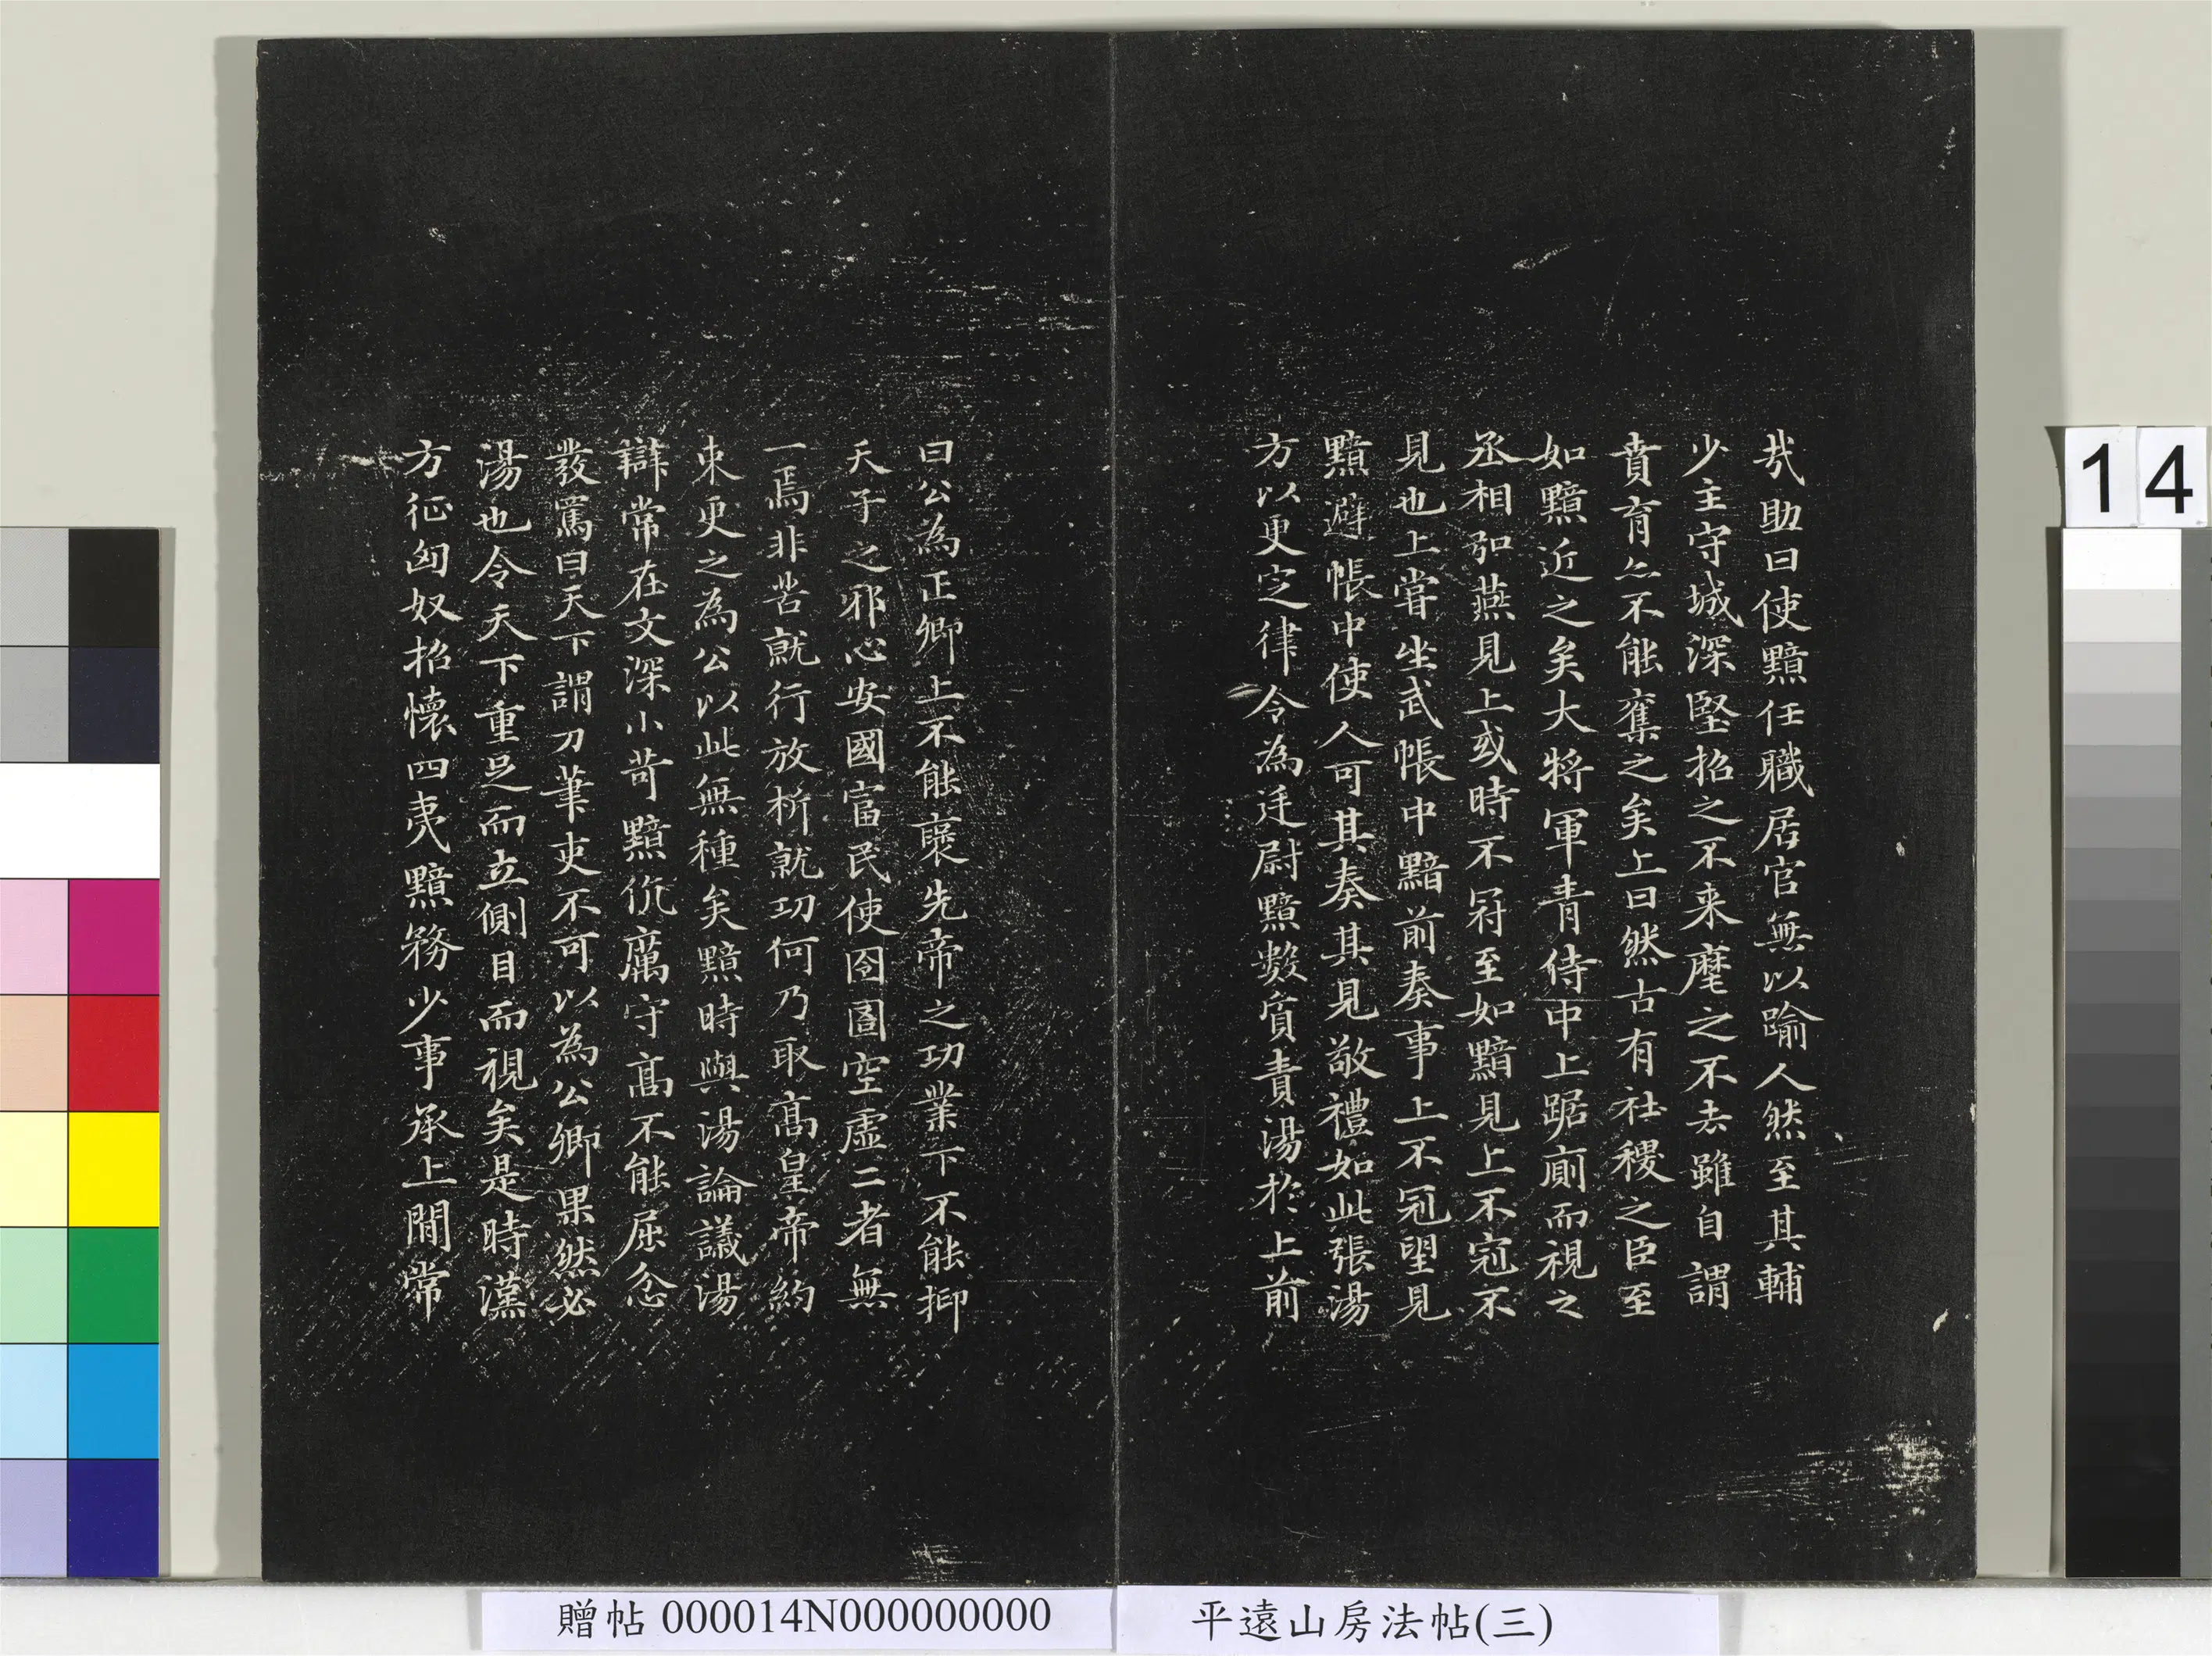 哉助曰使黯任職居官無以踰人然至其輔
少主守城深堅招之不来麾之不去雖自謂
賁育亦不能奪之矣上曰然古有社稷之臣至
如黯近之矣大將軍青侍中上踞廁而視之
丞相弘燕見上或時不冠至如黯見上不冠不
見也上嘗坐武帳中黯前奏事上不冠望見
黯避帳中使人可其奏其見敬禮如此張湯
方以更定律令為廷尉黯數質責湯於上前
曰公為正卿上不能襃先帝之功業下不能抑
天子之邪心安國富民使囹圄空虛二者無
一焉非苦就行放析就功何乃取高皇帝約
束更之為公以此無種矣黯時與湯論議湯
辯常在文深小苛黯伉厲守高不能屈忿
發罵曰天下謂刀筆吏不可以為公卿果然必
湯也令天下重足而立側目而視矣是時漢
方征匈奴招懷四夷黯務少事承上閒常
14
贈帖 000014N000000000
平遠山房法帖(三)